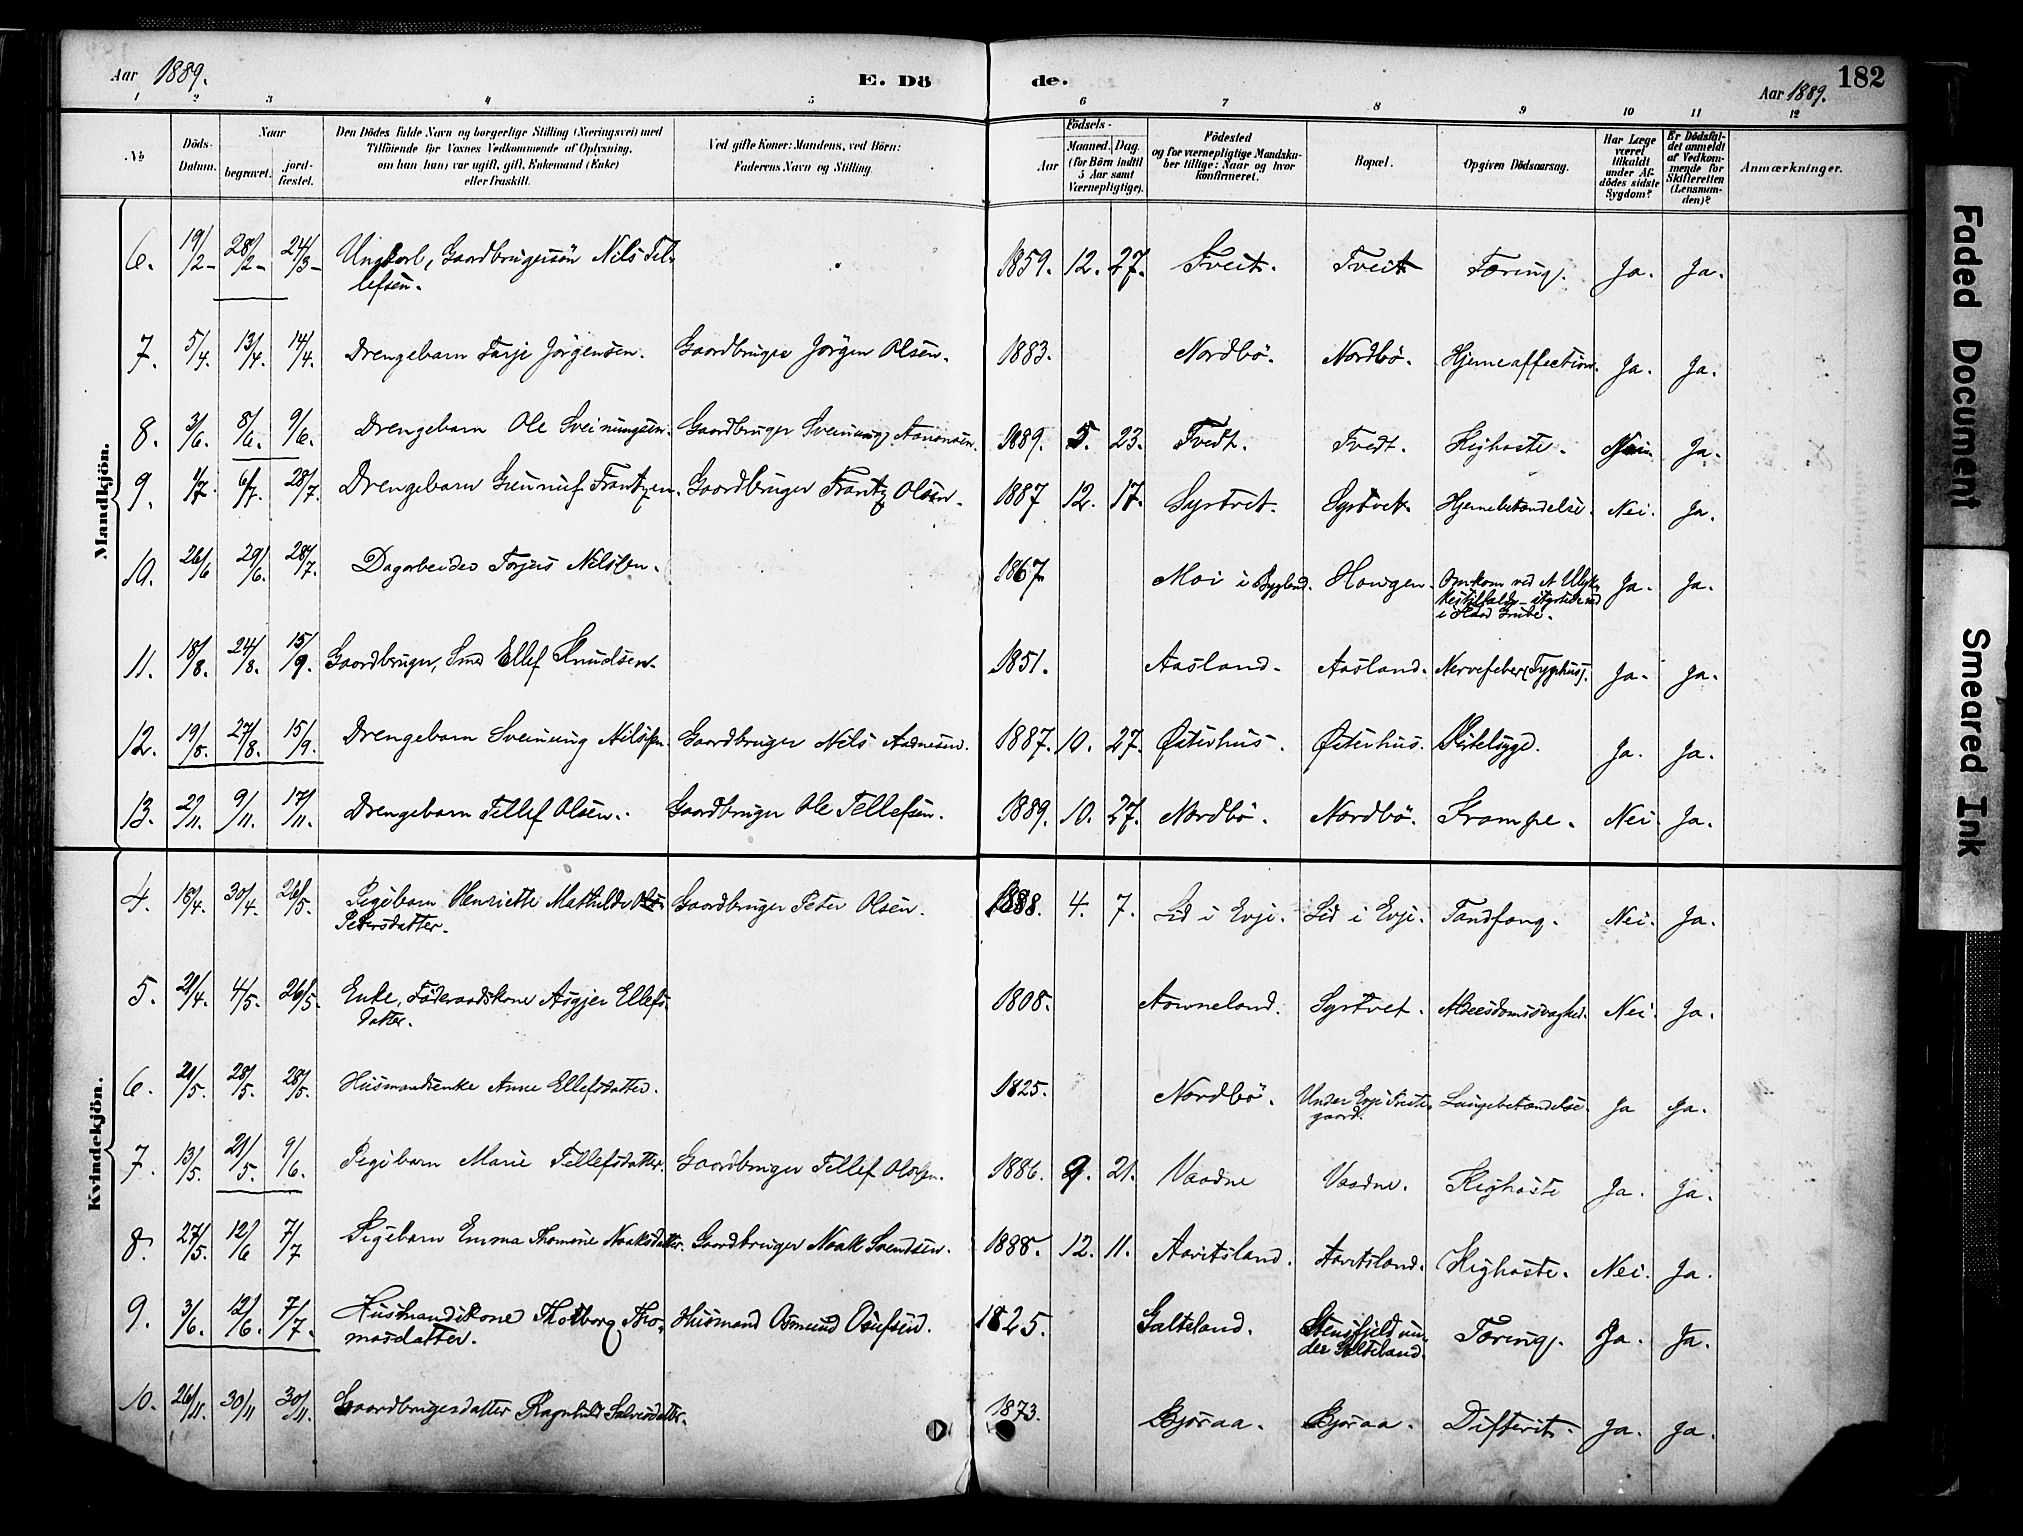 Aar 1889.
E. Dö
de.
Aar 1889.
182
1 2 3 4 5 6 7 8 9 10 11 12
No
Döds-Datum.
Naar
begravet.
jord-fæstet.
Den Dödes fulde Navn og borgerlige Stilling (Næringsvei) med
Tilföiende for Voxnes Vedkommende af Oplysning,
om han (hun) var ugift, gift, Enkemand (Enke)
eller fraskilt.
Ved gifte Koner: Mandens, ved Börn:
Faderens Navn og Stilling.
Födsels-
Aar
Maaned.
Dag.
(for Börn indtil
5 Aar samt
Værnepligtige).
Födested
og for værnepligtige Mandska-
ber tillige: Naar og hvor
konfirmeret.
Bopæl.
Opgiven Dödsaarsag.
Har Læge
været
tilkaldt
under Af-
dödes sidste
Sygdom?
Er Dödsfal-
det anmeldt
af Vedkom-
mende for
Skifteretten
(Lensman-
den)?
Anmærkninger.
Mandkjön.
6. 19/2- 28/2- 24/3- Ungkarl, Gaardbrugersön Nils Tel-
lefsen. 1859. 12. 27. Tveit. Tveit Tæring. Ja. Ja.
7. 5/4. 13/4. 14/4. Drengebarn Tarje Jörgensen. Gaardbruger Jörgen Olsen. 1883. Nordbö. Nordbö. Hjerneaffection. Ja. Ja.
8. 3/6. 8/6. 9/6. Drengebarn Ole Sveinungsen. Gaardbruger Sveinung Aanonsen. 1889. 5. 23. Tvedt. Tvedt. Kighoste. Nei. Ja.
9. 1/7. 6/7. 28/7. Drengebarn Gunnuf Frantzen. Gaardbruger Frantz Olsen. 1887 12. 17. Syrtvet. Syrtvet. Hjernebetændelse. Nei. Ja.
10. 26/6 29/6. 28/7. Dagarbeider Torjus Nilsen. 1867. Moi i Bygland. Haugen. Omkom ved et Ulyk-
kestilfælde - 
i Flaad Grube. Ja. Ja.
11. 18/8. 24/8. 15/9. Gaardbruger, Smed Ellef Knudsen. 1851. Aasland. Aasland. Nervefeber (Typhus). Ja. Ja.
12. 19/8. 27/8. 15/9. Drengebarn Sveinung Nilssen. Gaardbruger Nils Aadnesen. 1887. 10. 27. Østerhus. Østerhus. Ja. Ja.
13. 2/11. 9/11. 17/11. Drengebarn Tellef Olsen. Gaardbruger Ole Tellefsen. 1889. 10. 27. Nordbö. Nordbö. Krampe. Nei Ja.
Kvindekjön.
4. 18/4. 30/4. 26/5. Pigebarn Henriette Mathilde
Petersdatter. Gaardbruger Peter Olsen. 1888. 4. 7. Lid i Evje. Lid i Evje. Tandfang. Nei. Ja.
5. 21/4. 4/5. 26/5. Enke, Föderaadskone Asgjer Ellefs-
datter. 1808. Aavneland. Syrtvet. Alderdomssvaghed. Nei. Ja.
6. 21/5. 28/5. 28/5. Husmandsenke Anne Ellefsdatter. 1825. Nordbö. Under Evje Preste-
gaard. Lungebetændelse. Ja Ja.
7. 13/5. 21/5. 9/6. Pigebarn Marie Tellefsdatter. Gaardbruger Tellef Olsen. 1886. 9. 21. Vaadne Vaadne. Kighoste Ja. Ja.
8. 27/5. 12/6 7/7 Pigebarn Emma Thomine Noaksdatter. Gaardbruger Noak Svendsen. 1888. 12. 11. Aavitsland. Aavitsland. Kighoste. Nei. Ja.
9. 3/6. 12/6. 7/7. Husmandskone Tholborg Tho-
masdatter. Husmand Osmund Osufsen. 1825. Galteland. Stensfjeld un-
der Galteland. Tæring. Ja. Ja.
10. 26/11. 30/11 30/11. Gaardbrugerdatter Ragnhild Salvesdatter. 1873. Bjoraa. Bjoraa. Difterit. Ja. Ja.
Faded Document
Smeared Ink